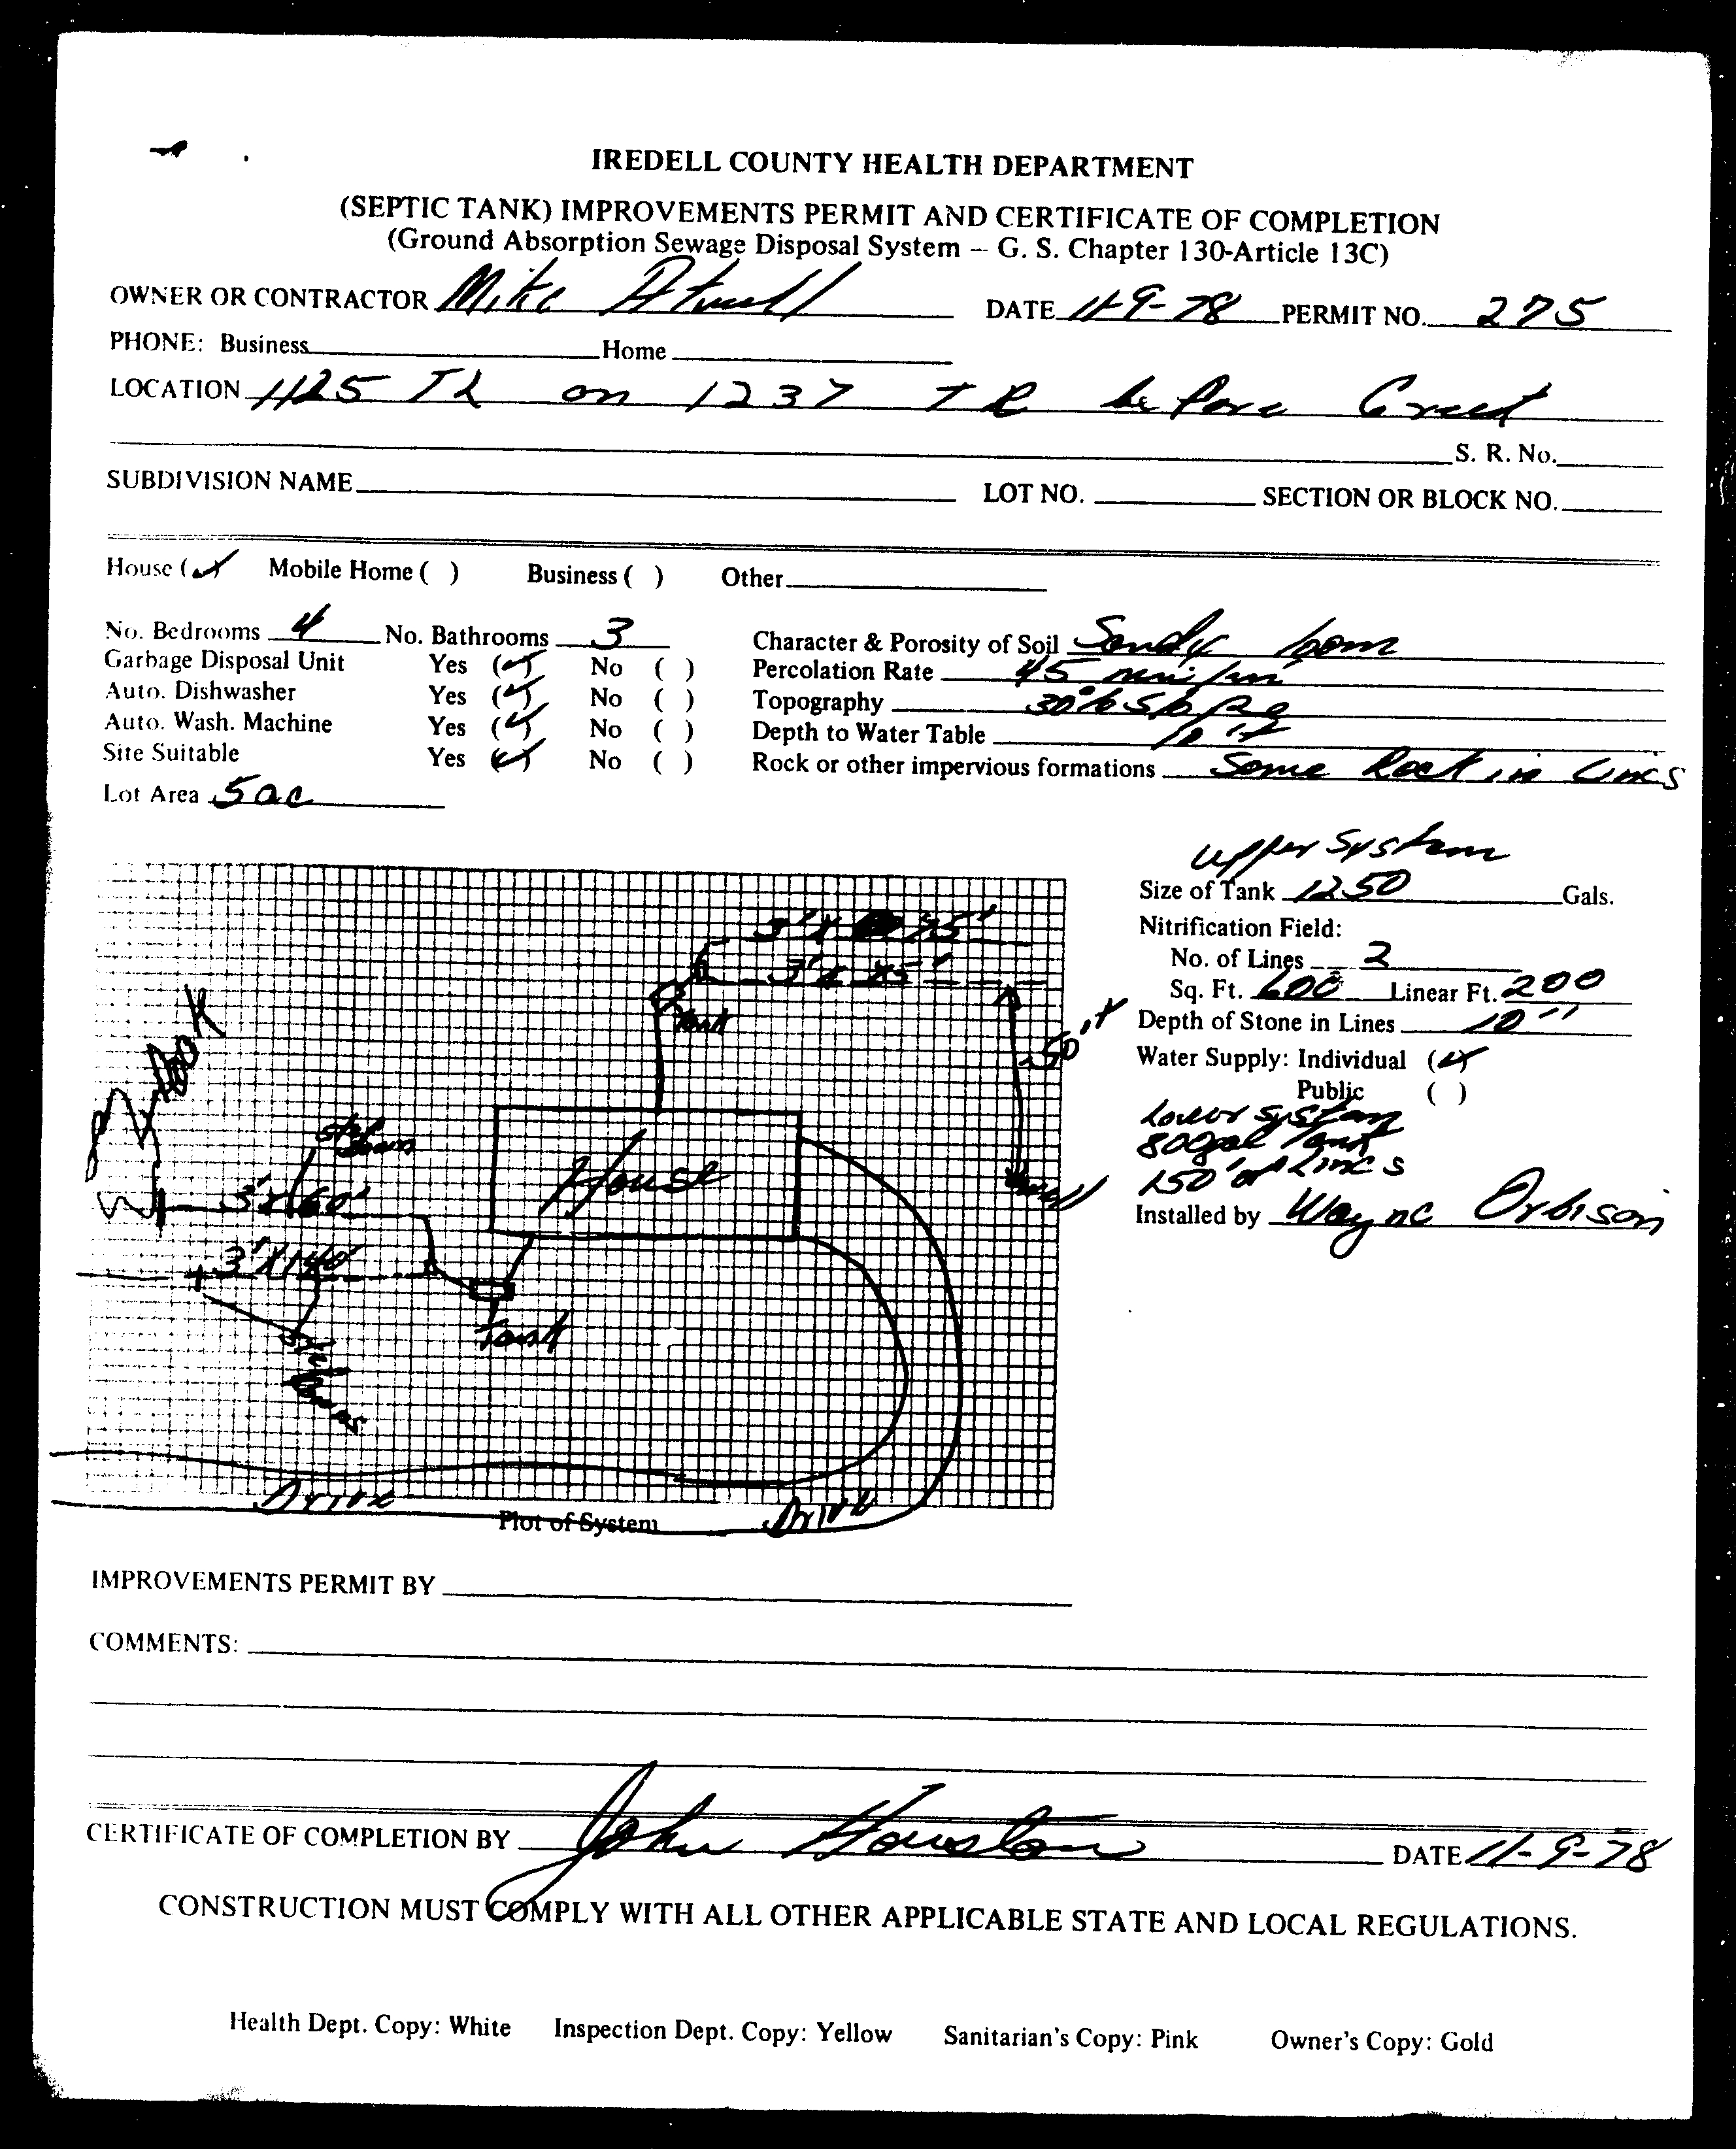 IREDELL COUNTY HEALTH DEPARTMENT
(SEPTIC TANK) IMPROVEMENTS PERMIT AND CERTIFICATE OF COMPLETION
(Ground Absorption Sewage Disposal System – G. S. Chapter 130-Article 13C)
OWNER OR CONTRACTOR Mike Atwell DATE 11-9-78 PERMIT NO. 275
PHONE: Business Home
LOCATION 1125 TL on 1237 TR before Creek
S. R. No.
SUBDIVISION NAME LOT NO. SECTION OR BLOCK NO.
House (✓) Mobile Home ( ) Business ( ) Other
No. Bedrooms 4 No. Bathrooms 3 Character & Porosity of Soil Sandy loam
Garbage Disposal Unit Yes (✓) No ( ) Percolation Rate 45 min/in
Auto. Dishwasher Yes (✓) No ( ) Topography 30% Slope
Auto. Wash. Machine Yes (✓) No ( ) Depth to Water Table 10'
Site Suitable Yes (✓) No ( ) Rock or other impervious formations Some Rock in Lines
Lot Area 5 ac
upper System
Size of Tank 1250 Gals.
Nitrification Field:
No. of Lines 2
Sq. Ft. 600 Linear Ft. 200
Depth of Stone in Lines 10"
Water Supply: Individual (✓)
Public ( )
Lower System
800 gal Tank
150' of Lines
Installed by Wayne Orbison
3' X 75'
3' X
Tank
50'
well
House
3' X 60'
3' X 140'
Tank
Drive
Drive
Plot of System
IMPROVEMENTS PERMIT BY
COMMENTS:
CERTIFICATE OF COMPLETION BY John Houston DATE 11-9-78
CONSTRUCTION MUST COMPLY WITH ALL OTHER APPLICABLE STATE AND LOCAL REGULATIONS.
Health Dept. Copy: White Inspection Dept. Copy: Yellow Sanitarian's Copy: Pink Owner's Copy: Gold